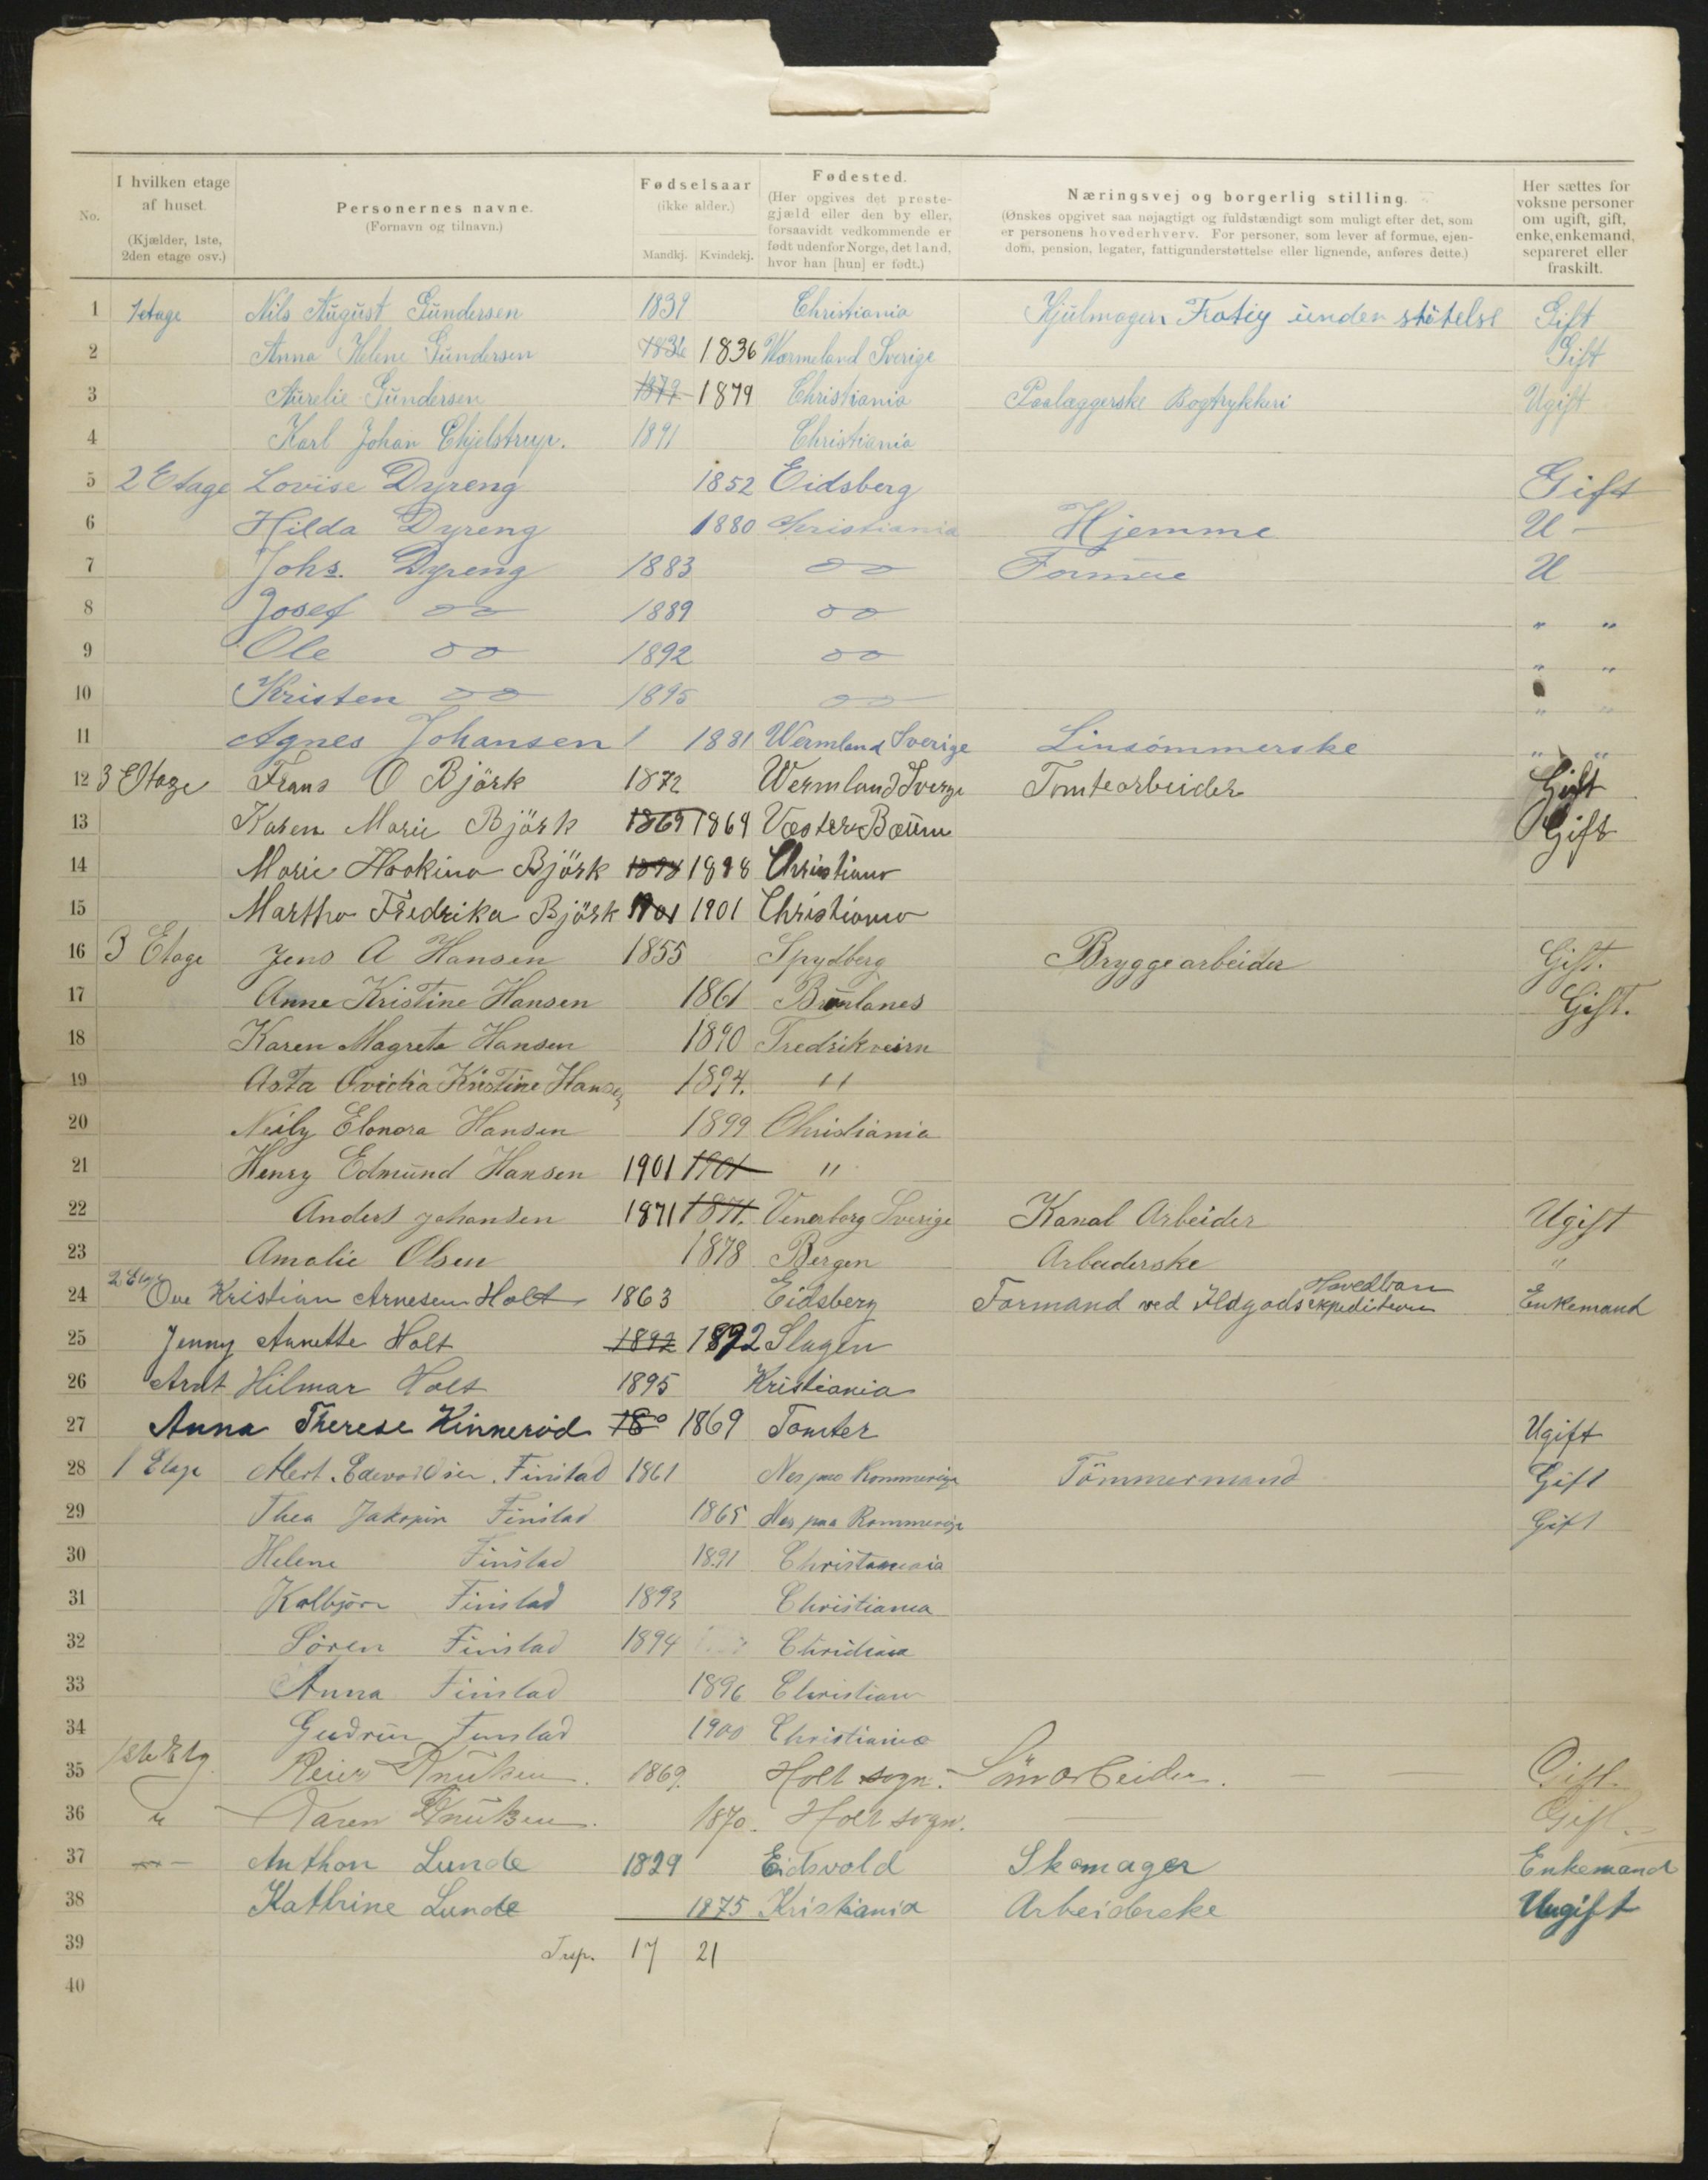 No.
I hvilken etage af huset.
(Kjælder, 1ste, 2den etage osv.)
Personernes navne.
(Fornavn og tilnavn.)
Fødselsaar
(ikke alder.)
Mandkj. Kvindekj.
Fødested.
(Her opgives det præstegjæld eller den by eller, forsaavidt vedkommende er født udenfor Norge, det land, hvor han [hun] er født.)
Næringsvej og borgerlig stilling.
(Ønskes opgivet saa nøjagtigt og fuldstændigt som muligt efter det, som er personens hovederhverv. For personer, som lever af formue, ejendom, pension, legater, fattigunderstøttelse eller lignende, anføres dette.)
Her sættes for voksne personer om ugift, gift, enke, enkemand, separeret eller fraskilt.
1 1 etage Nils August Gundersen 1839 Christiania Hjulmager Fatig understøtelse Gift
2 Anna Helene Gundersen 1836 1836 Wermeland Sverige Gift
3 Aurelie Gundersen 1879 1879 Christiania Paalæggerske Bogtrykkeri Ugift
4 Karl Johan Ehjelstrup. 1891 Christiania
5 2 Etage Lovise Dyreng 1852 Eidsberg Gift
6 Hilda Dyreng 1880 Christiania Hjemme U -
7 Johs. Dyreng 1883 do U
8 Josef do 1889 do " "
9 Ole do 1892 do " "
10 Kristen do 1895 do " "
11 Agnes Johansen 1881 Wermland Sverige Linsömmerske " "
12 3 Etage Frans O Björk 1872 Wermland Sverge Tomtearbeider Gift
13 Karen Marie Björk 1869 1869 Vester Bærum Gift
14 Marie Haakina Björk 1898 1898 Christiania
15 Martha Fredrika Björk 1901 1901 Christiania
16 3 Etage Jens A Hansen 1855 Spydberg Bryggearbeider Gift.
17 Anne Kristine Hansen 1861 Brunlanes Gift.
18 Karen Magrete Hansen 1890 Fredriksværn
19 Asta Ovidia Kristine Hansen 1894. "
20 Neily Elonora Hansen 1899 Christiania
21 Henry Edmund Hansen 1901 1901 "
22 Anders Johansen 1871 1871. Venerborg Sverige Kanal Arbeider Ugift
23 Amalie Olsen 1878 Bergen Arbeiderske "
24 2 Etage Ove Kristian Arnesen Holt 1863 Eidsberg Formand ved Ilgodsekspeditionen Hovedban Enkemand
25 Jenny Annette Holt 1892 1892 Slagen
26 Arnt Hilmar Holt 1895 Kristiania
27 Anna Therese Kinneröd 18 1869 Tomter Ugift
28 1 Etage Albert Edevardsen Finstad 1861 Nes paa Rommerige Tömmermand Gift
29 Thea Jakopin Finstad 1865 Nes paa Rommerige Gift
30 Helene Finstad 1891 Christiania
31 Kolbjørn Finstad 1893 Christiania
32 Sören Finstad 1894 Christiania
33 Anna Finstad 1896 Christiania
34 Gudrun Finstad 1900 Christiania
35 1ste Etg. Reier Knutsen. 1869. Holt sogn. Gift.
36 " Karen Knutsen. 1870. Holt sogn. Gift.
37 Anthon Lunde 1829 Eidsvold Skomager Enkemand
38 Kathrine Lunde 1875 Kristiania Arbeiderske Uugift
39 Trsp. 17 21
40